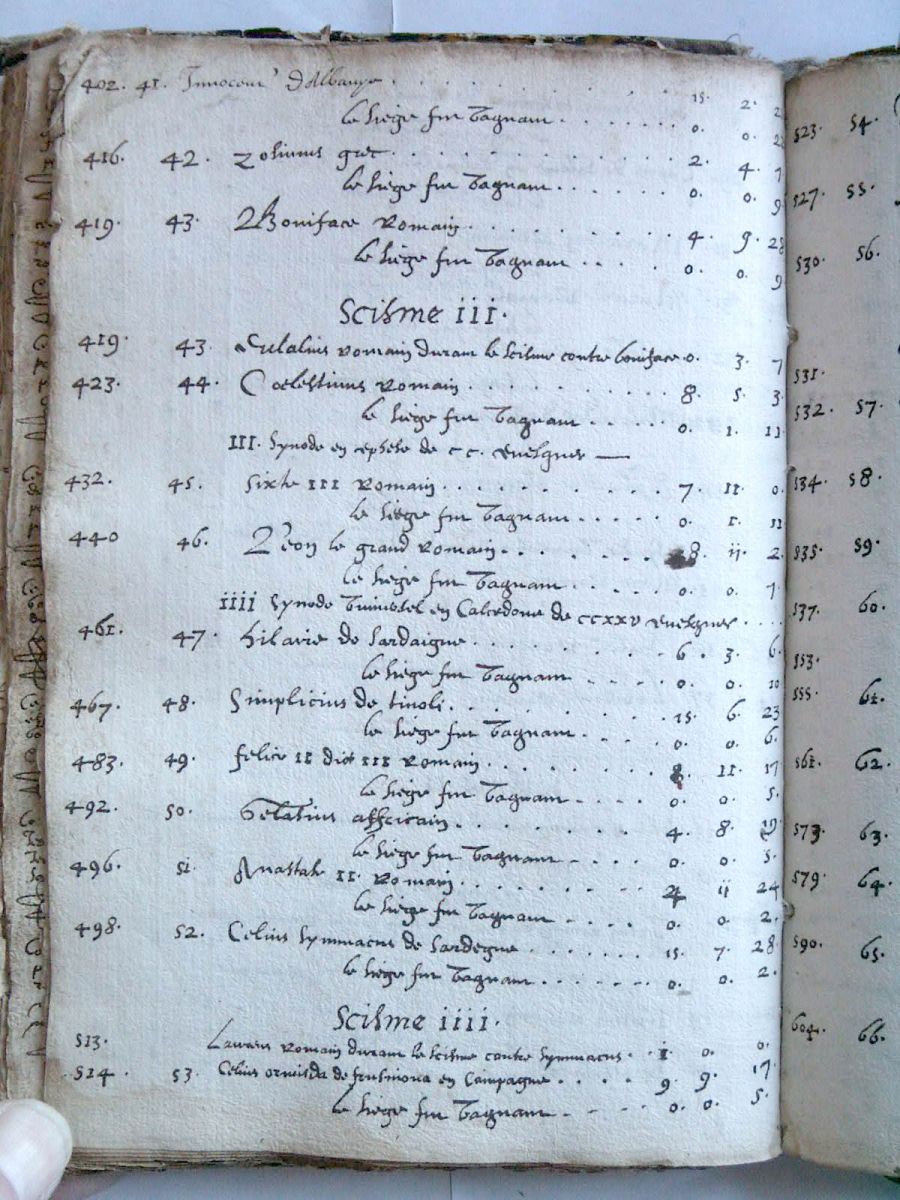 402. 41. Innocent d'Albanye . . . . . . . . 15. 2. 2
le siege fut vaquant . . . . . . . 0. 0. 2
416. 42. Zosimus grec . . . . . . . . . 2. 4. 7
le siege fut vaquant . . . . . . 0. 0. 9
419. 43. Boniface Romain . . . . . . . . 4. 9. 28
le siege fut vaquant . . . . 0. 0. 9
Scisme iii.
419. 43. Eulalius romain durant le scisme contre boniface 0. 3. 7
423. 44. Coelestinus Romain . . . . . . . . 8. 5. 3
le siege fut vaquant . . . . . 0. 1. 11
III. Synode en ephese de cc. evesques —
432. 45. Sixte III Romain . . . . . . . . . 7. 11. 0
le siege fut vaquant . . . . . 0. 1. 11
440 46. Leon le grand Romain . . . . . . 8. ii. 2.
le siege fut vaquant . . . . . . 0. 0. 7
iiii Synode en Calcedone de ccxxv evesques . . . .
461. 47. hilaire de Sardaigne . . . . . . . . 6. 3. 6.
le siege fut vaquant . . . . 0. 0. 10
467. 48. Simplicius de tivoli . . . . . . . . 15. 6. 23
le siege fut vaquant . . . . 0. 0. 6.
483. 49. felice II dict III Romain . . . . . . 8. 11. 17
le siege fut vaquant . . . . 0. 0. 5.
492. 50. Gelasius affricain . . . . . . . . 4. 8. 19
le siege fut vaquant . . . . . 0. 0. 5.
496. 51. Anastase II. Romain . . . . . . . . 2 ii 24
le siege fut vaquant . . . . . 0. 0. 2.
498. 52. Celius symmacus de Sardegne . . . . . 15. 7. 28
le siege fut vaquant . . . . . 0. 0. 2.
Scisme iiii.
513. Laurens Romain durant le scisme contre symmacus . . 1. 0. 0.
514. 53. Celius ormisda de frusinona en Campagne . . . . 9. 9. 17
le siege fut vaquant . . . . 0. 0. 5.
523. 54.
527. 55.
530. 56.
531.
532. 57.
534. 58.
535. 59.
537. 60.
553.
555. 61.
561. 62.
573. 63.
579. 64.
590. 65.
604. 66.